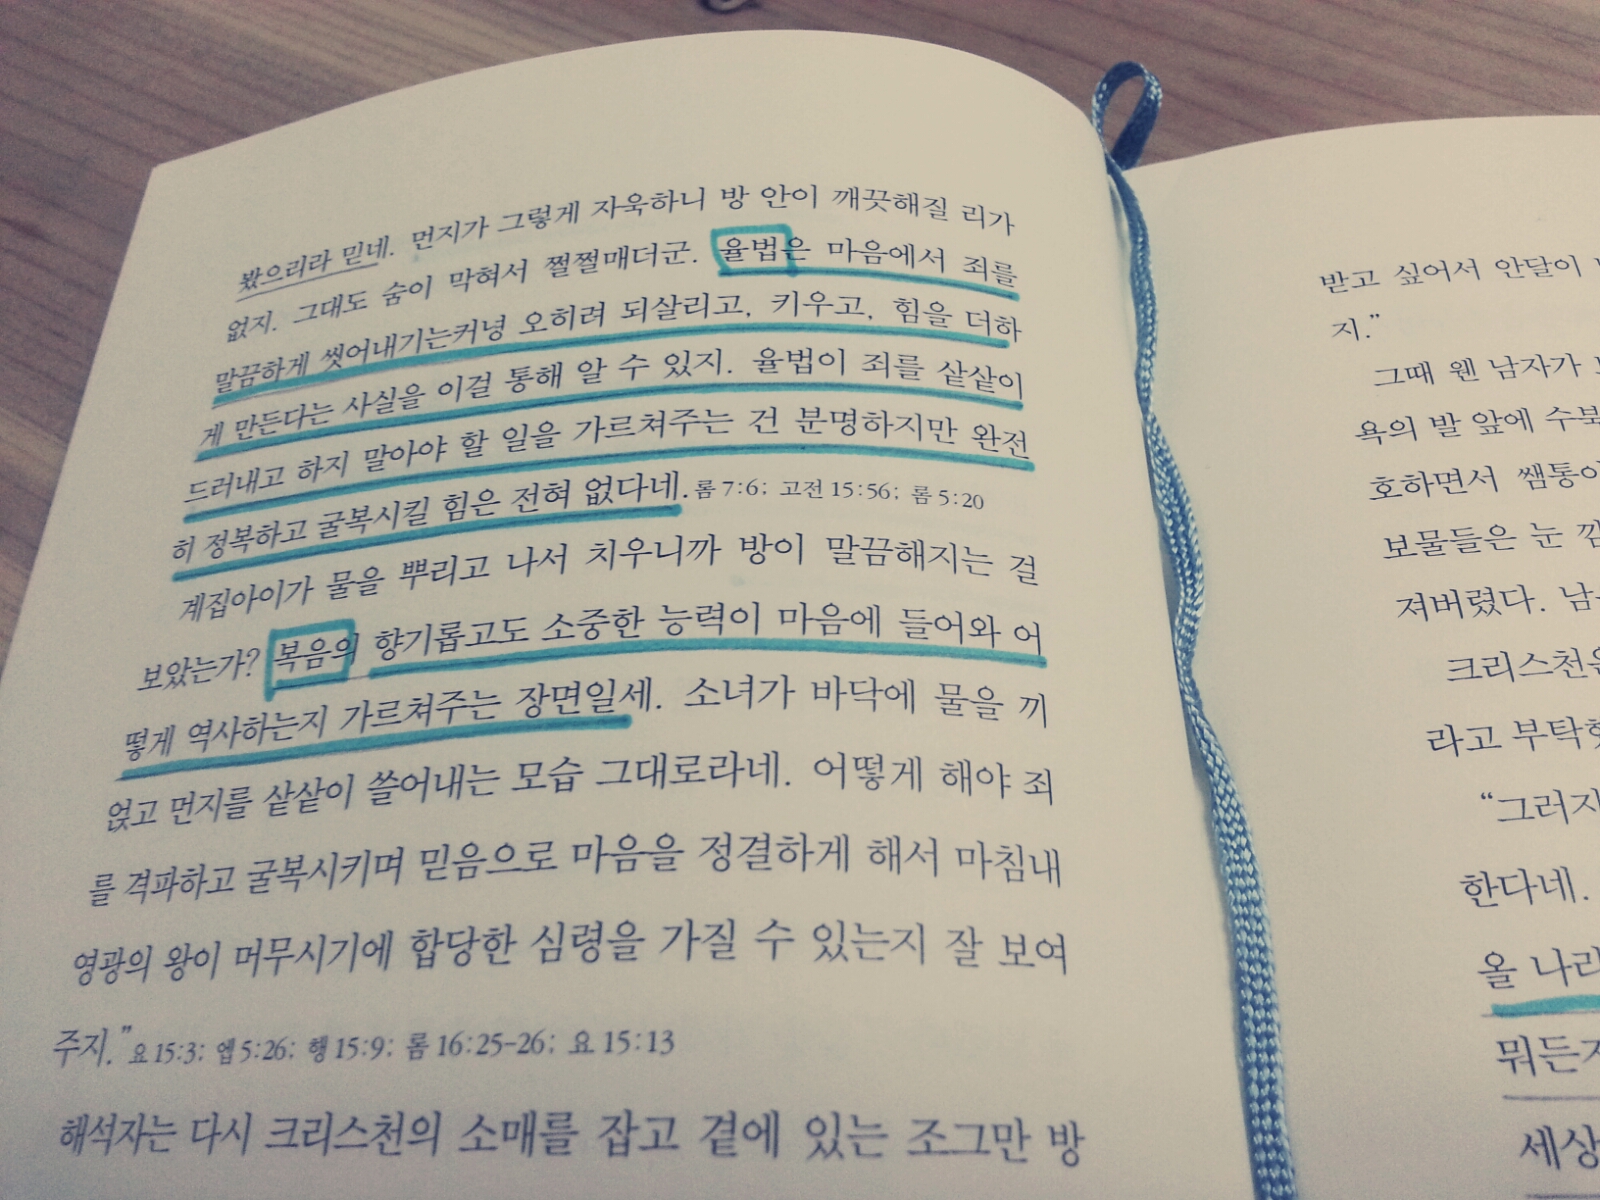 봤으리라 믿네. 먼지가 그렇게 자욱하니 방 안이 깨끗해질 리가
없지. 그대도 숨이 막혀서 쩔쩔매더군. 율법은 마음에서 죄를
말끔하게 씻어내기는커녕 오히려 되살리고, 키우고, 힘을 더하
게 만든다는 사실을 이걸 통해 알 수 있지. 율법이 죄를 샅샅이
드러내고 하지 말아야 할 일을 가르쳐주는 건 분명하지만 완전
히 정복하고 굴복시킬 힘은 전혀 없다네. 롬 7:6; 고전 15:56; 롬 5:20
계집아이가 물을 뿌리고 나서 치우니까 방이 말끔해지는 걸
보았는가? 복음의 향기롭고도 소중한 능력이 마음에 들어와 어
떻게 역사하는지 가르쳐주는 장면일세. 소녀가 바닥에 물을 끼
얹고 먼지를 샅샅이 쓸어내는 모습 그대로라네. 어떻게 해야 죄
를 격파하고 굴복시키며 믿음으로 마음을 정결하게 해서 마침내
영광의 왕이 머무시기에 합당한 심령을 가질 수 있는지 잘 보여
주지.” 요 15:3; 엡 5:26; 행 15:9; 롬 16:25-26; 요 15:13
해석자는 다시 크리스천의 소매를 잡고 곁에 있는 조그만 방
받고 싶어서 안달이
지.”
그때 웬 남자가
욕의 발 앞에
호하면서
보물들은 눈
져버렸다.
크리스천은
라고
“그러자
한다네.
올
뭐든지
세상